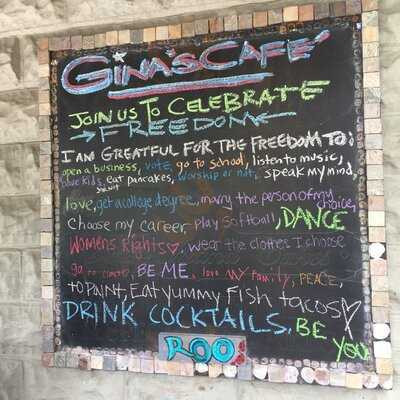 GINA'S CAFÉ
JOIN US TO CELEBRATE
→FREEDOM←
I AM GREATFUL FOR THE FREEDOM TO:
open a business, vote, go to school, listen to music,
have kids, eat pancakes, worship or not, speak my mind,
love, get a college degree, marry the person of my choice,
choose my career, play softball, DANCE
WOMENS RIGHTS ♡, wear the clothes I choose
go to, BE ME, love MY Family, PEACE,
TO PAINT, Eat yummy Fish tacos ♡
DRINK COCKTAILS, BE YOU
ROO!